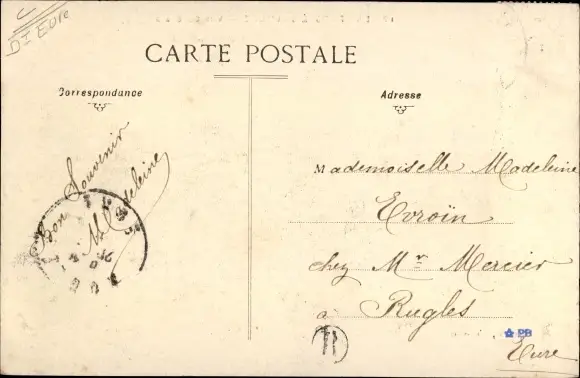 Dt EURE
CARTE POSTALE
Correspondance
Adresse
Bon Souvenir
Madeleine
Mademoiselle Madeleine
Evroïn
chez Mr Mercier
à Rugles
Eure
PB